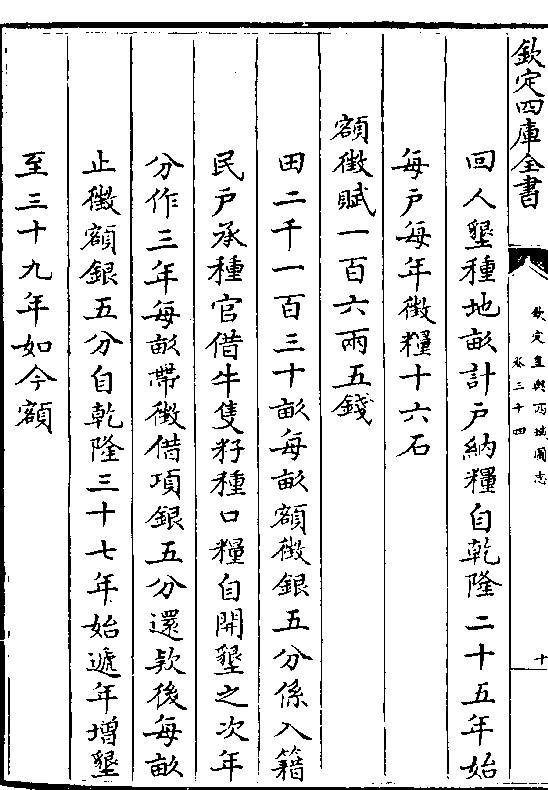 欽定四庫全書
欽定皇輿西域圖志
卷三十四
十
回人墾種地畝計戶納糧自乾隆二十五年始
每戶每年徵糧十六石
額徵賦一百六兩五錢
田二千一百三十畝每畝額徵銀五分係入籍
民戶承種官借牛隻籽種口糧自開墾之次年
分作三年每畝帶徵借項銀五分還欵後每畝
止徵額銀五分自乾隆三十七年始遞年增墾
至三十九年如今額